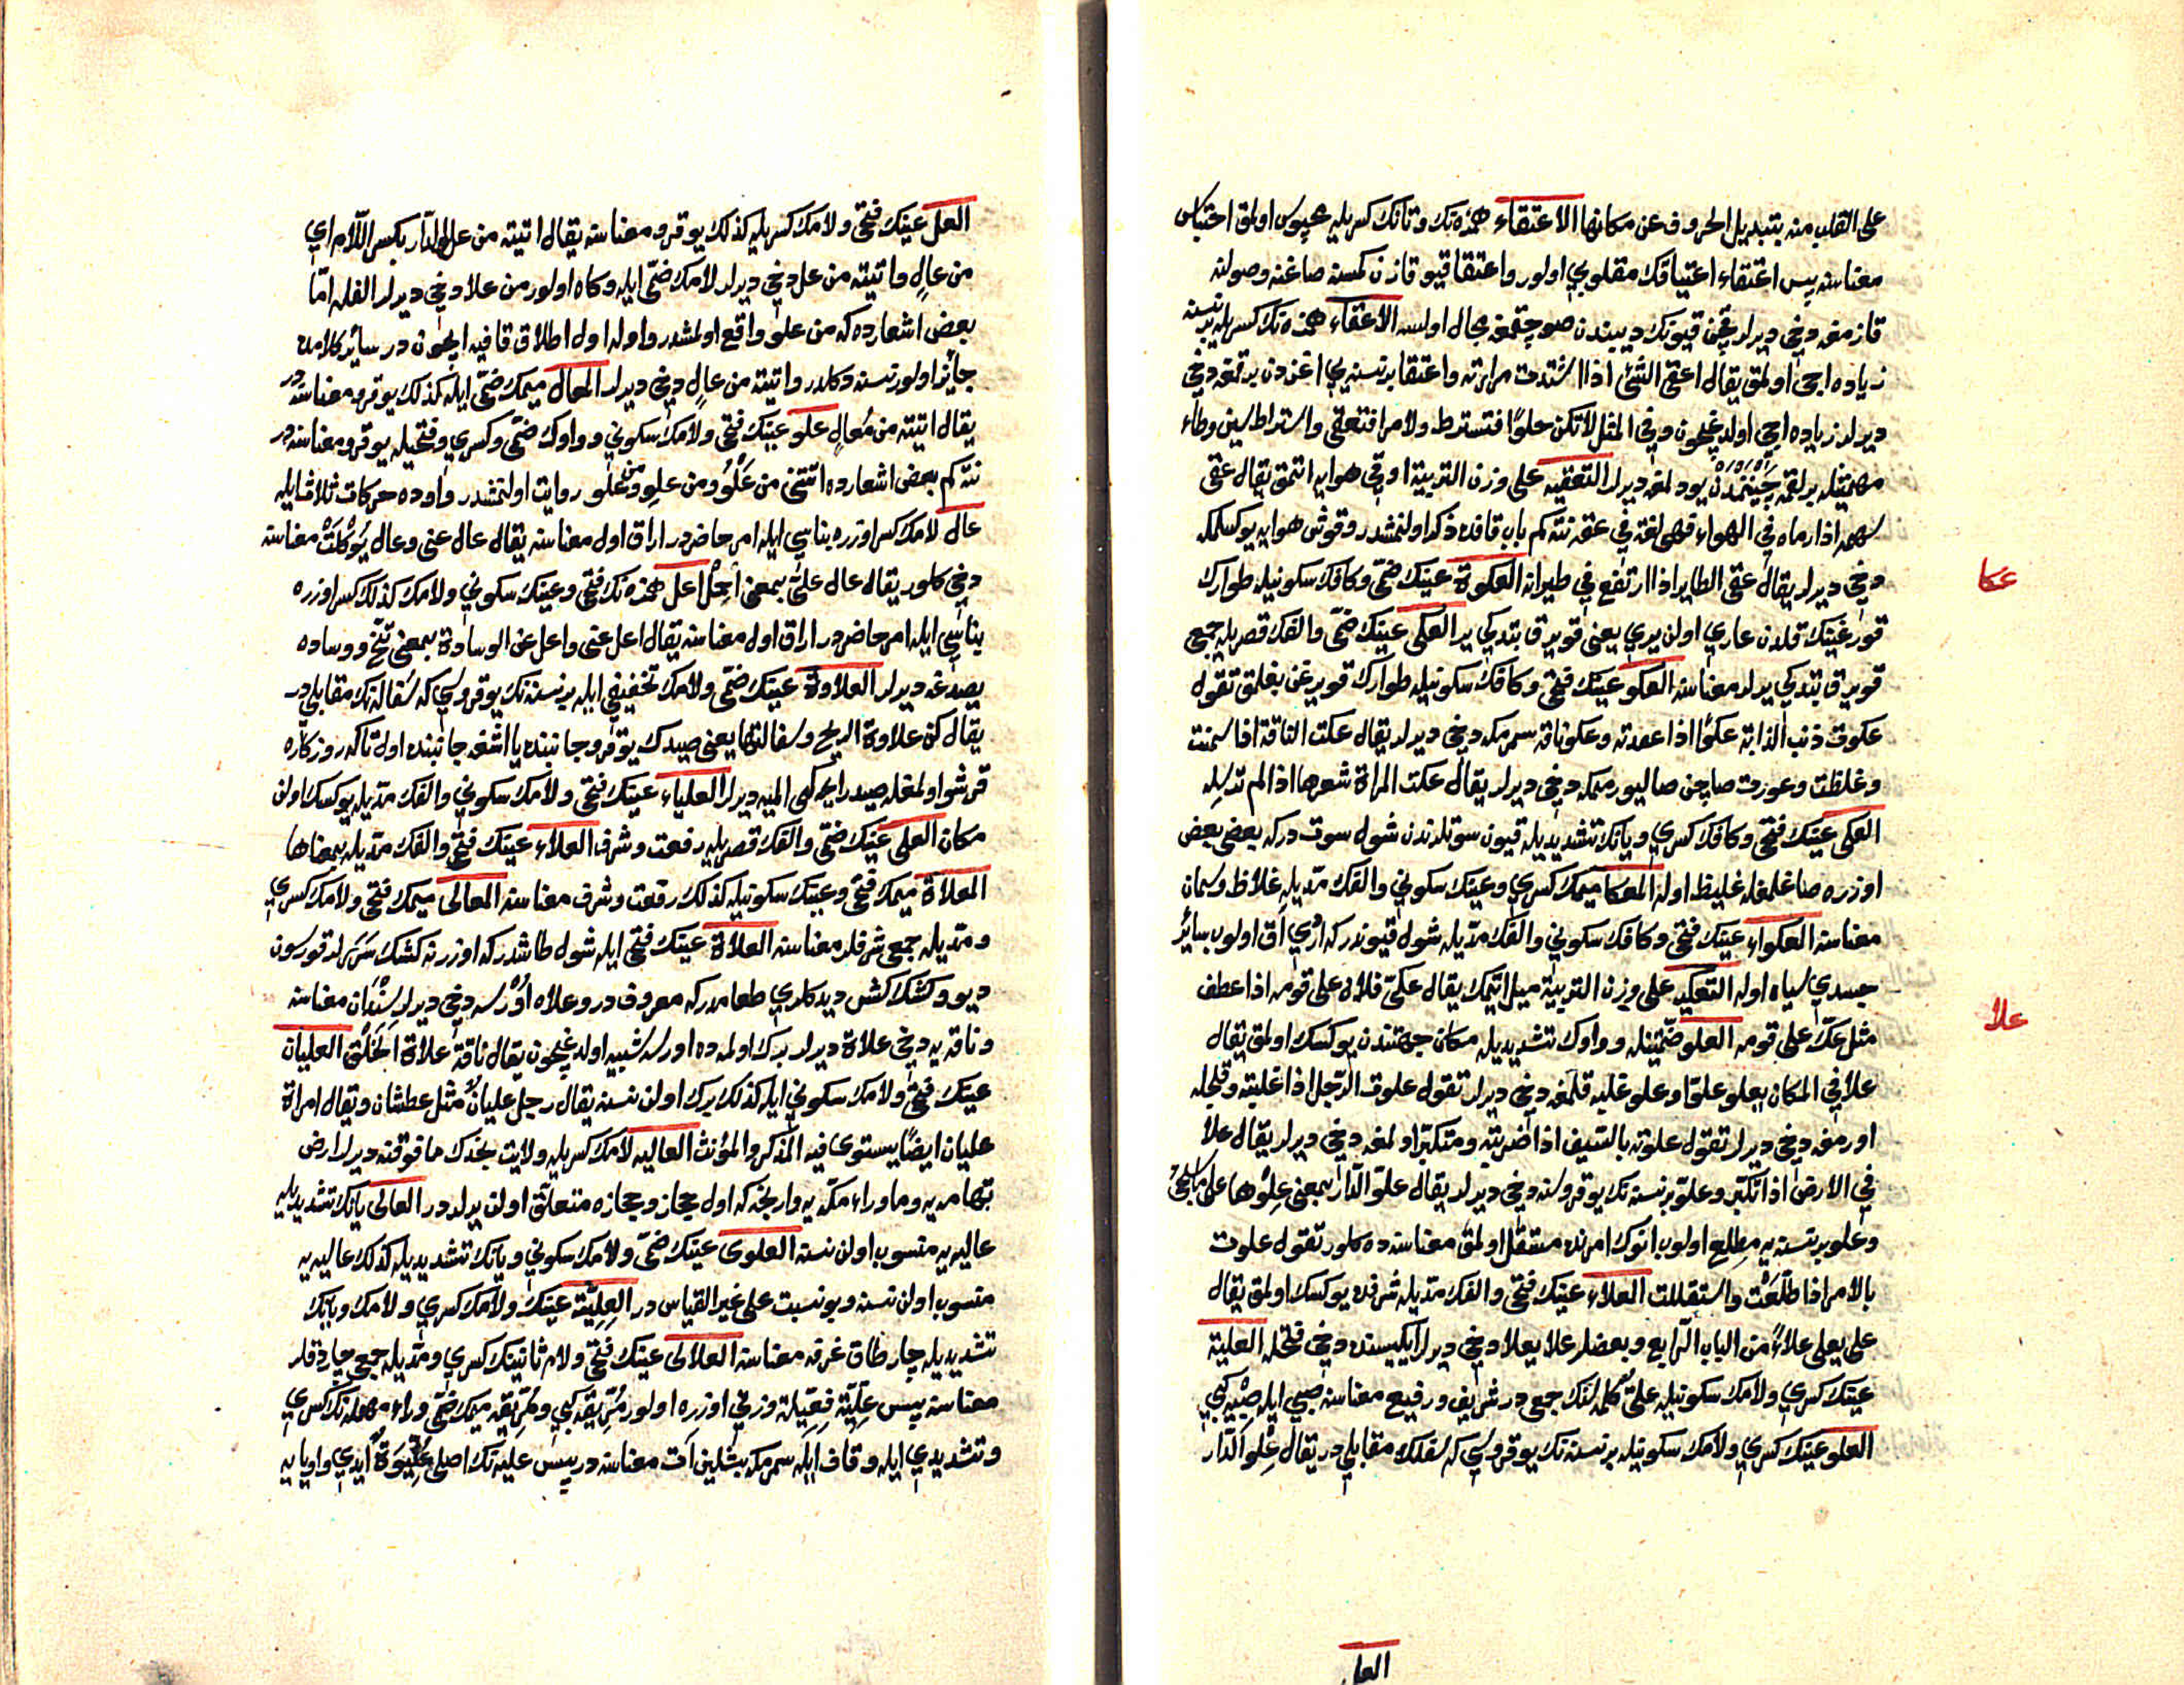 على القلب منه بتبديل الحروف عن مكانها الاعتقاء همزه نك وتانك كسريله محبوس اولمق احتباس
معناسنه پس اعتقاء اعتياقك مقلوبي اولور واعتقا قيو قازن كمسنه صاغنه وصولنه
قازمغه دخي ديرلر قچن قيونك ديبندن صو چقمغه مجال اولمسه الاعقاء همزه نك كسريله بر نسنه
زياده اجى اولمق يقال اعقى الشئ اذا اشتدت مرارته واعتقا بر نسنه يي اغزدن برقمغه دخي
ديرلر زياده اجى اولديغيچون وفي المثل لا تكن حلوا فتسترط ولا مرا فتعقى واستراط سين وطاء
مهمتيله بر لقمه چينمدن يودلمغه ديرلر التعقيه على وزن التربية اوقى هوايه اتمق يقال عقى
بسهمه اذا رماه في الهواء فهى لغة في عقه نته كم باب قافده ذكر اولنمشدر وقوش هوايه يوكسلمكه
دخي ديرلر يقال عقى الطاير اذا ارتفع في طيرانه العكوة عينك ضمى وكافك سكونيله طوارك
عكا
قويرغينك قلدن عاري اولن يري يعني قويرق بتديكي ير العكى عينك ضمى والفك قصريله جمع
قويرق بتديكي يرلر معناسنه العكو عينك فتحى وكافك سكونيله طوارك قويرغن بغلمق تقول
عكوت ذنب الدابة عكوا اذا عقدته وعكو ناقه سمرمكه دخي ديرلر يقال عكت الناقة اذا سمنت
وغلظت وعورت صاچن صاليورمكه دخي ديرلر يقال عكت المراة شعرها اذا لم ترسله
العكى عينك فتحى وكافك كسري ويانك تشديديله قيون سوتلرندن شول سوت دركه بعضى بعض
اوزره صاغلمغله غليظ اوله المعكا ميمك كسري وعينك سكوني والفك مديله غلاظ وسمان
معناسنه العكواء عينك فتحى وكافك سكوني والفك مديله شول قيوندر كه اردي اق اولوب سائر
جسدي سياه اوله التعكيه على وزن التربية ميل اتمك يقال عكى فلان على قومه اذا عطف
مثل عك على قومه العلو ضمتينله وواوك تشديديله مكان جهتندن يوكسك اولمق يقال
علا
علا في المكان يعلو علوا وعلو غلبه قلمغه دخي ديرلر تقول علوت الرجل اذا غلبته وقلجله
اورمغه دخي ديرلر تقول علوته بالسيف اذا ضربته ومتكبر اولمغه دخي ديرلر يقال علا
في الارض اذا تكبر وعلو بر نسنه نك يوقروسنه دخي ديرلر يقال علو الدار بمعنى علوها على ما يجئ
وعلو بر نسنه يه مطلع اولوب انوك امرنده مستقل اولمق معناسنه ده كلور تقول علوت
بالامر اذا طلعت واستقللت العلاء عينك فتحى والفك مديله شرفده يوكسك اولمق يقال
على يعلى علاء من الباب الرابع وبعضلر علا يعلا دخي ديرلر ايكيسنده دخي فتحله العلية
عينك كسري ولامك سكونيله على كلمه سنك جمع در شريف ورفيع معناسنه صبي ايله صبيه كبي
العلو عينك كسري ولامك سكونيله بر نسنه نك يوقروسي كه سفلك مقابلي در يقال علو الدار
العل
العل عينك فتحى ولامك كسريله كذلك يوقرو معناسنه يقال اتيته من عل الدار بكسر اللام اي
من عال واتيته من عل دخي ديرلر لامك ضمى ايله وكاه اولور من علا دخي ديرلر الفله اما
بعض اشعارده كه من علو واقع اولمشدر واو اول اطلاق قافيه ايچون در سائر كلامده
جائز اولور نسنه دكلدر واتيته من عال دخي ديرلر المعال ميمك ضمى ايله كذلك يوقرو معناسنه در
يقال اتيته من معال علو عينك فتحى ولامك سكوني وواوك ضمى وكسري وفتحيله يوقرو معناسنه در
نته كم بعض اشعارده اتتني من علو ومن علو ومن علو روايت اولنمشدر واوده حركات ثلاث ايله
عال لامك كسر اوزره بناسي ايله امر حاضردر اراق اول معناسنه يقال عال عنى وعال يوكلت معناسنه
دخي كلور يقال عال على بمعنى احمل اعل همزه نك فتحى وعينك سكوني ولامك كذلك كسر اوزره
بناسي ايله امر حاضردر اراق اول معناسنه يقال اعل عنى واعل عن الوسادة بمعنى تنح ووساده
يصديغه ديرلر العلاوة عينك ضمى ولامك تخفيفي ايله بر نسنه نك يوقروسي كه سفاله نك مقابلي در
يقال كن علاوة الريح وسفالتها يعني صيدك يوقرو جانبنده يا اشغه جانبنده اول تاكه روزكاره
قرشو اولمغله صيد رايحه كى الميه ديرلر العلياء عينك فتحى ولامك سكوني والفك مديله يوكسك اولن
مكان العلى عينك ضمى والفك قصريله رفعت وشرف العلاء عينك فتحى والفك مديله بمعناها
المعلاة ميمك فتحى وعينك سكونيله كذلك رفعت وشرف معناسنه المعالى ميمك فتحى ولامك كسري
ومديله جمع شرفلر معناسنه العلاة عينك فتحى ايله شول طاشدر كه اوزرنه كشك سررلر قورسون
ديو وكشك كش ديدكلري طعامدر كه معروف در وعلاه اورسه دخي ديرلر سندان معناسنه
وناقه يه دخي علاة ديرلر برك اولمده اورسه شبيه اولديغيچون يقال ناقة علاة الخلق العليان
عينك فتحى ولامك سكوني ايله كذلك برك اولن نسنه يقال رجل عليان مثل عطشان ويقال امراة
عليان ايضا يستوى فيه المذكر والمؤنث العاليه لامك كسريله ولايت نجدك ما فوقنه ديرلر ارض
تهامه يه وما وراء مكه يه وارنجه كه اول حجاز وحجازه متعلق اولن يرلردر العالى يانك تشديديله
عاليه يه منسوب اولن نسنه العلوى عينك ضمى ولامك سكوني ويانك تشديديله كذلك عاليه يه
منسوب اولن نسنه وبو نسبت على غير القياس در العلية عينك ولامك كسري ولامك ويانك
تشديديله چار طاق غرفه معناسنه العلالى عينك فتحى ولام ثانينك كسري ومديله جمع چارطاقلر
معناسنه پس علية فعيلة وزني اوزره اولور مريقه كبي ومريقه ميمك ضمى وراء مهمله نك كسري
وتشديدي ايله وقاف ايله سمرمكه بشلين ات معناسنه در پس عليه نك اصلى عليوة ايدي واو يايه